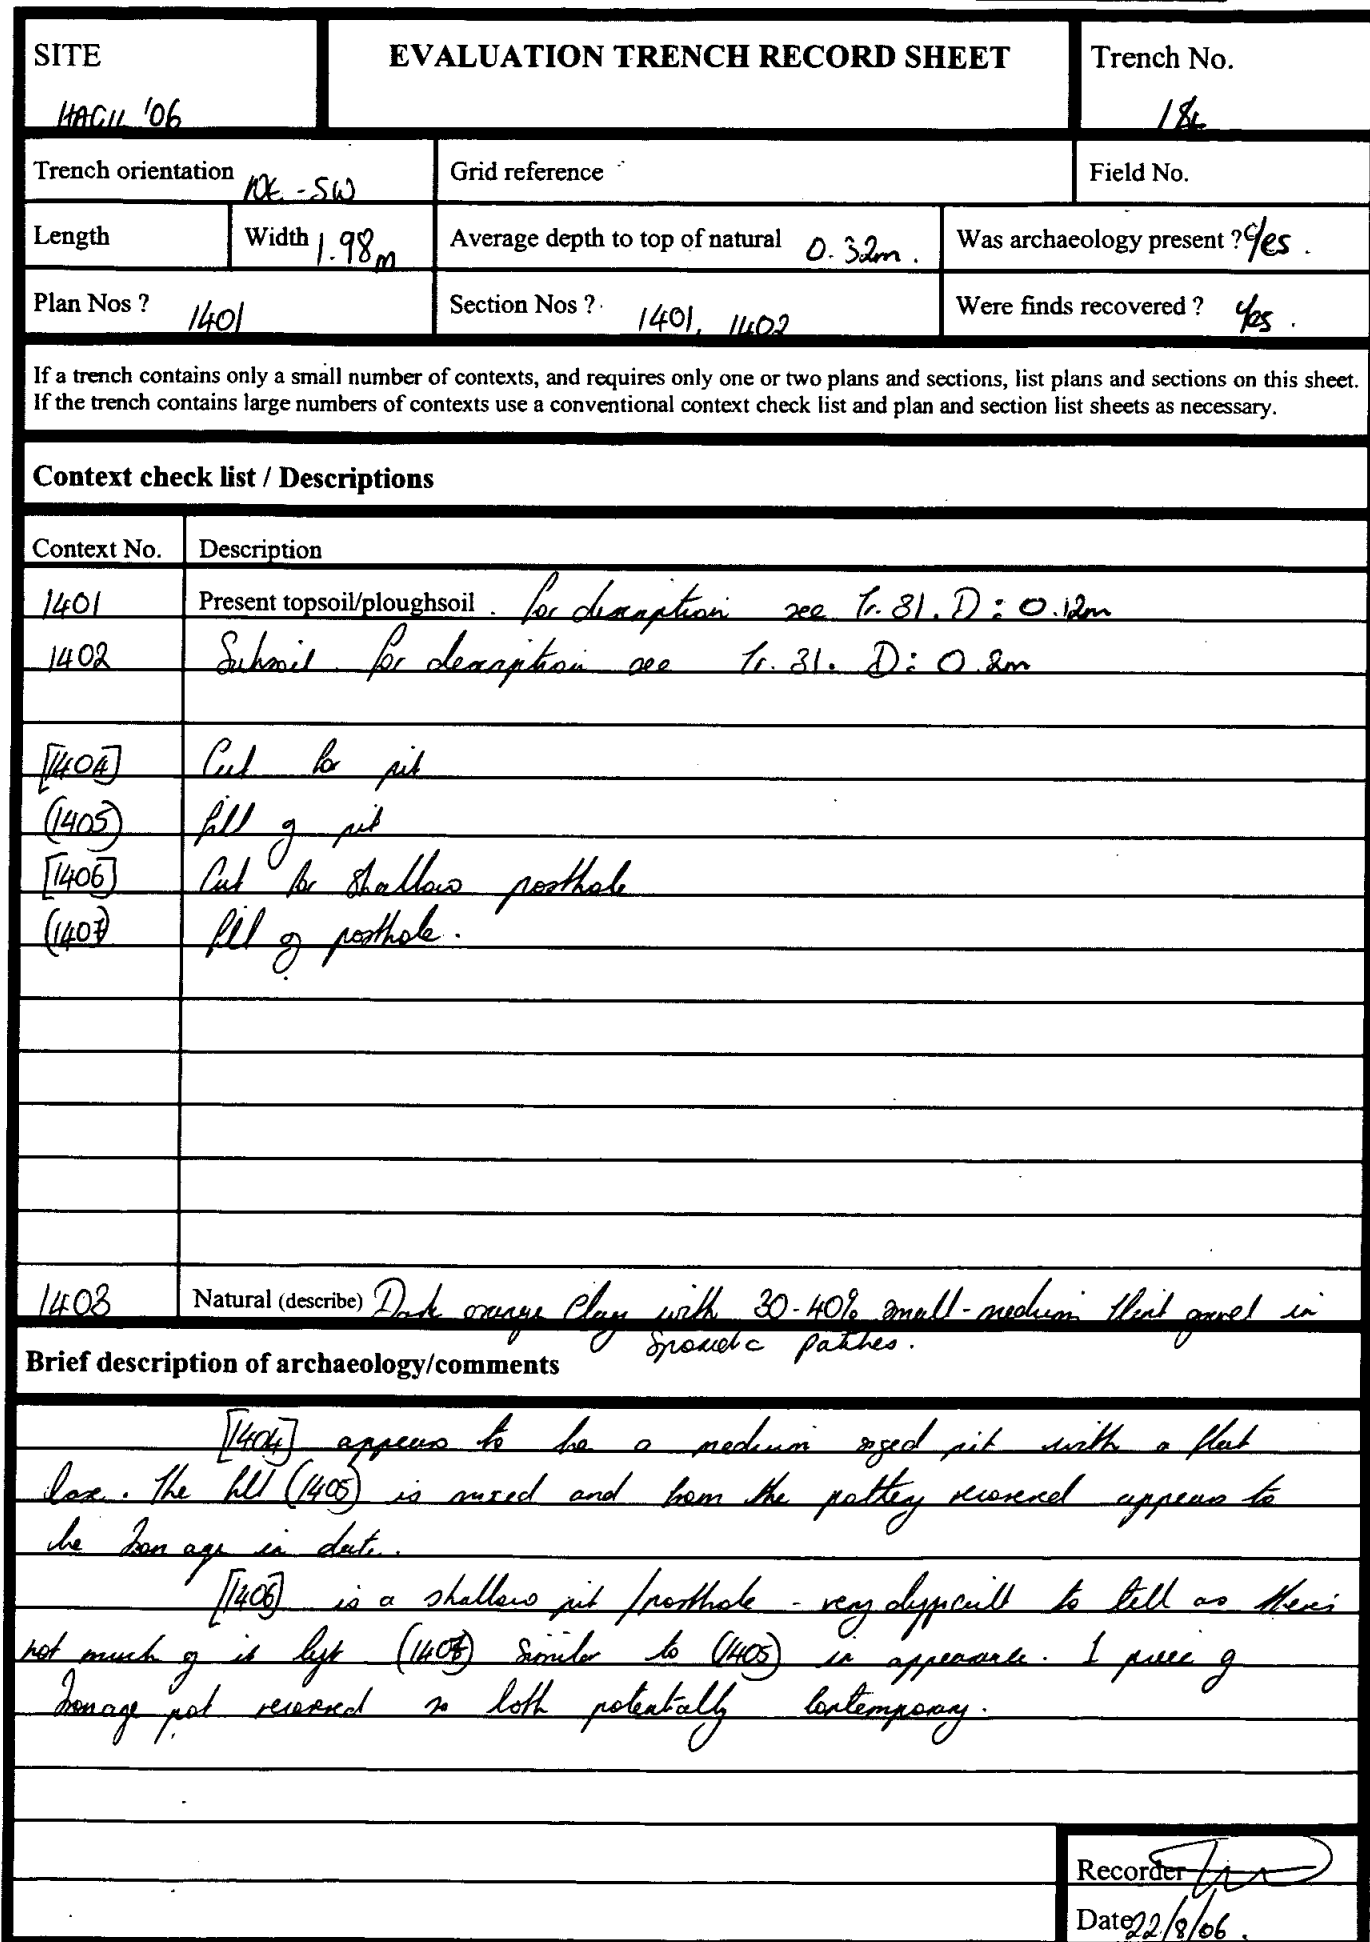 SITE
EVALUATION TRENCH RECORD SHEET
Trench No.
HAGIL '06
14
Trench orientation NE - SW
Grid reference
Field No.
Length
Width 1.98m
Average depth to top of natural 0.32m.
Was archaeology present ? Yes.
Plan Nos ? 1401
Section Nos ? 1401, 1402
Were finds recovered ? Yes.
If a trench contains only a small number of contexts, and requires only one or two plans and sections, list plans and sections on this sheet.
If the trench contains large numbers of contexts use a conventional context check list and plan and section list sheets as necessary.
Context check list / Descriptions
Context No. Description
1401 Present topsoil/ploughsoil. for description see Tr. 31. D: 0.12m
1402 Subsoil. for description see Tr. 31. D: 0.2m
[1404] Cut for pit
(1405) fill of pit
[1406] Cut for shallow posthole
(1407) fill of posthole.
1403 Natural (describe) Dark orange clay with 30-40% small-medium flint gravel in
sporadic patches.
Brief description of archaeology/comments
[1404] appears to be a medium sized pit with a flat
base. The fill (1405) is mixed and from the pottery recovered appears to
be Iron age in date.
[1406] is a shallow pit/posthole - very difficult to tell as theirs
not much of it left (1407) similar to (1405) in appearance. 1 piece of
Ironage pot recovered so both potentially contemporary.
Recorder
Date 22/8/06.